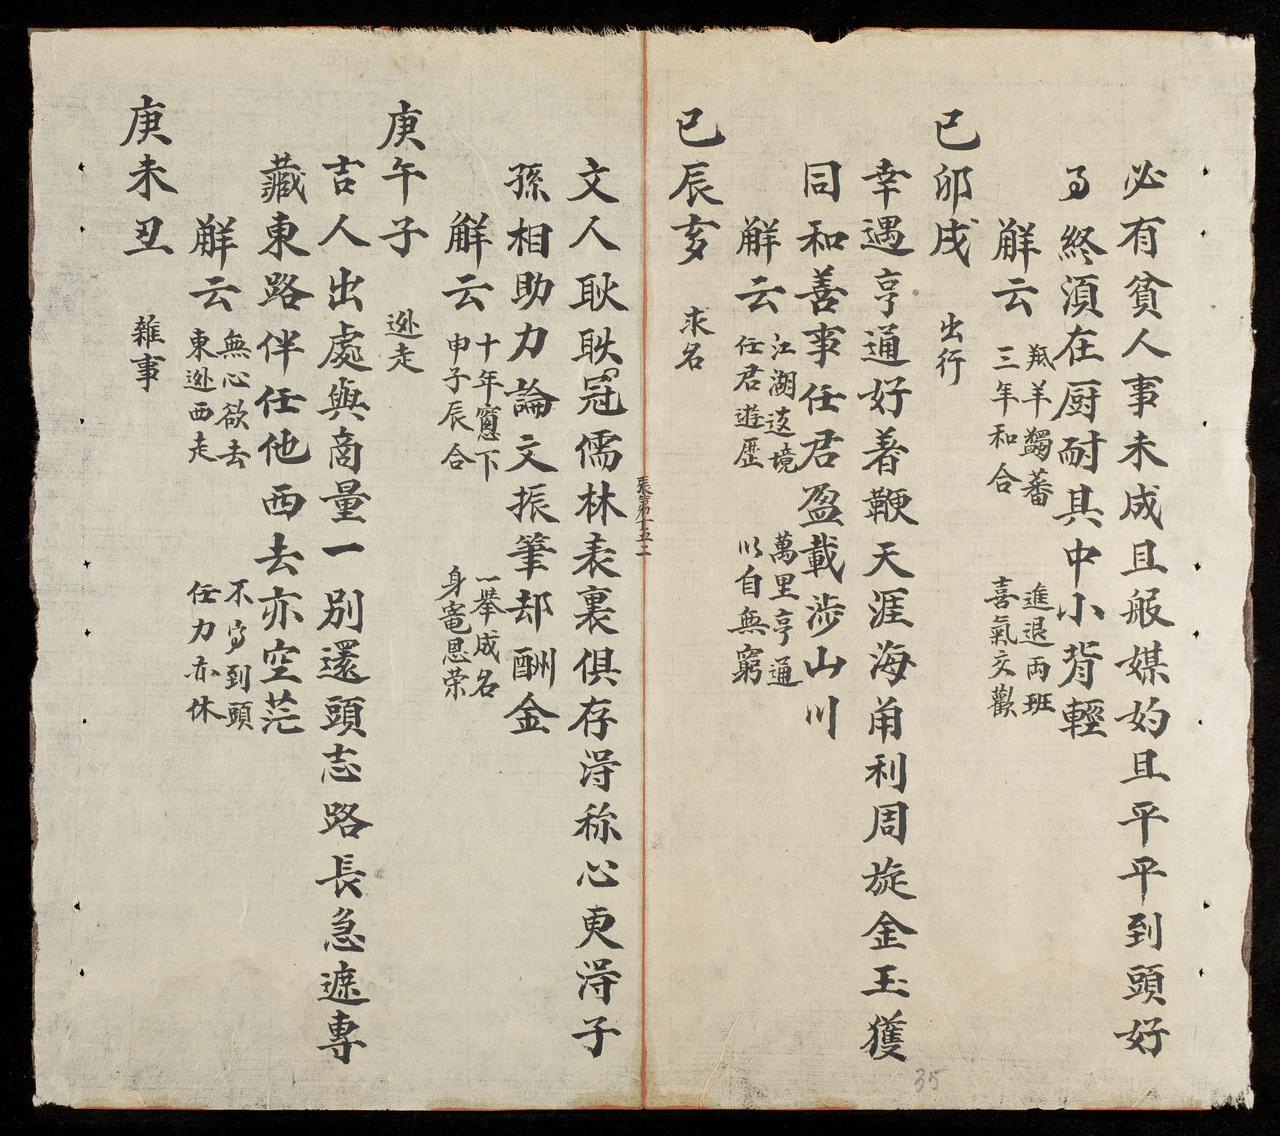 必有貧人事未成且般媒妁且平平到頭好
了終須在厨耐具中小背輕
解云
羝羊觸蕃
三年和合
進退両班
喜氣交歡
己卯戌 出行
幸遇亨通好着鞭天涯海角利周旋金玉獲
同和善事任君盈載涉山川
解云
江湖边境
任君遊歷
萬里亨通
以自無窮
己辰亥 求名
文人耿耿冠儒林表裏俱存淂称心更淂子
孫相助力論文振筆却酬金
解云
十年窓下
申子辰合
一舉成名
身竜恩荣
庚午子 逃走
吉人出處與商量一別還頭志路長急遮專
藏東路伴任他西去亦空茫
解云
無心欲去
東逃西走
不到頭
任力亦休
庚未丑 雜事
35